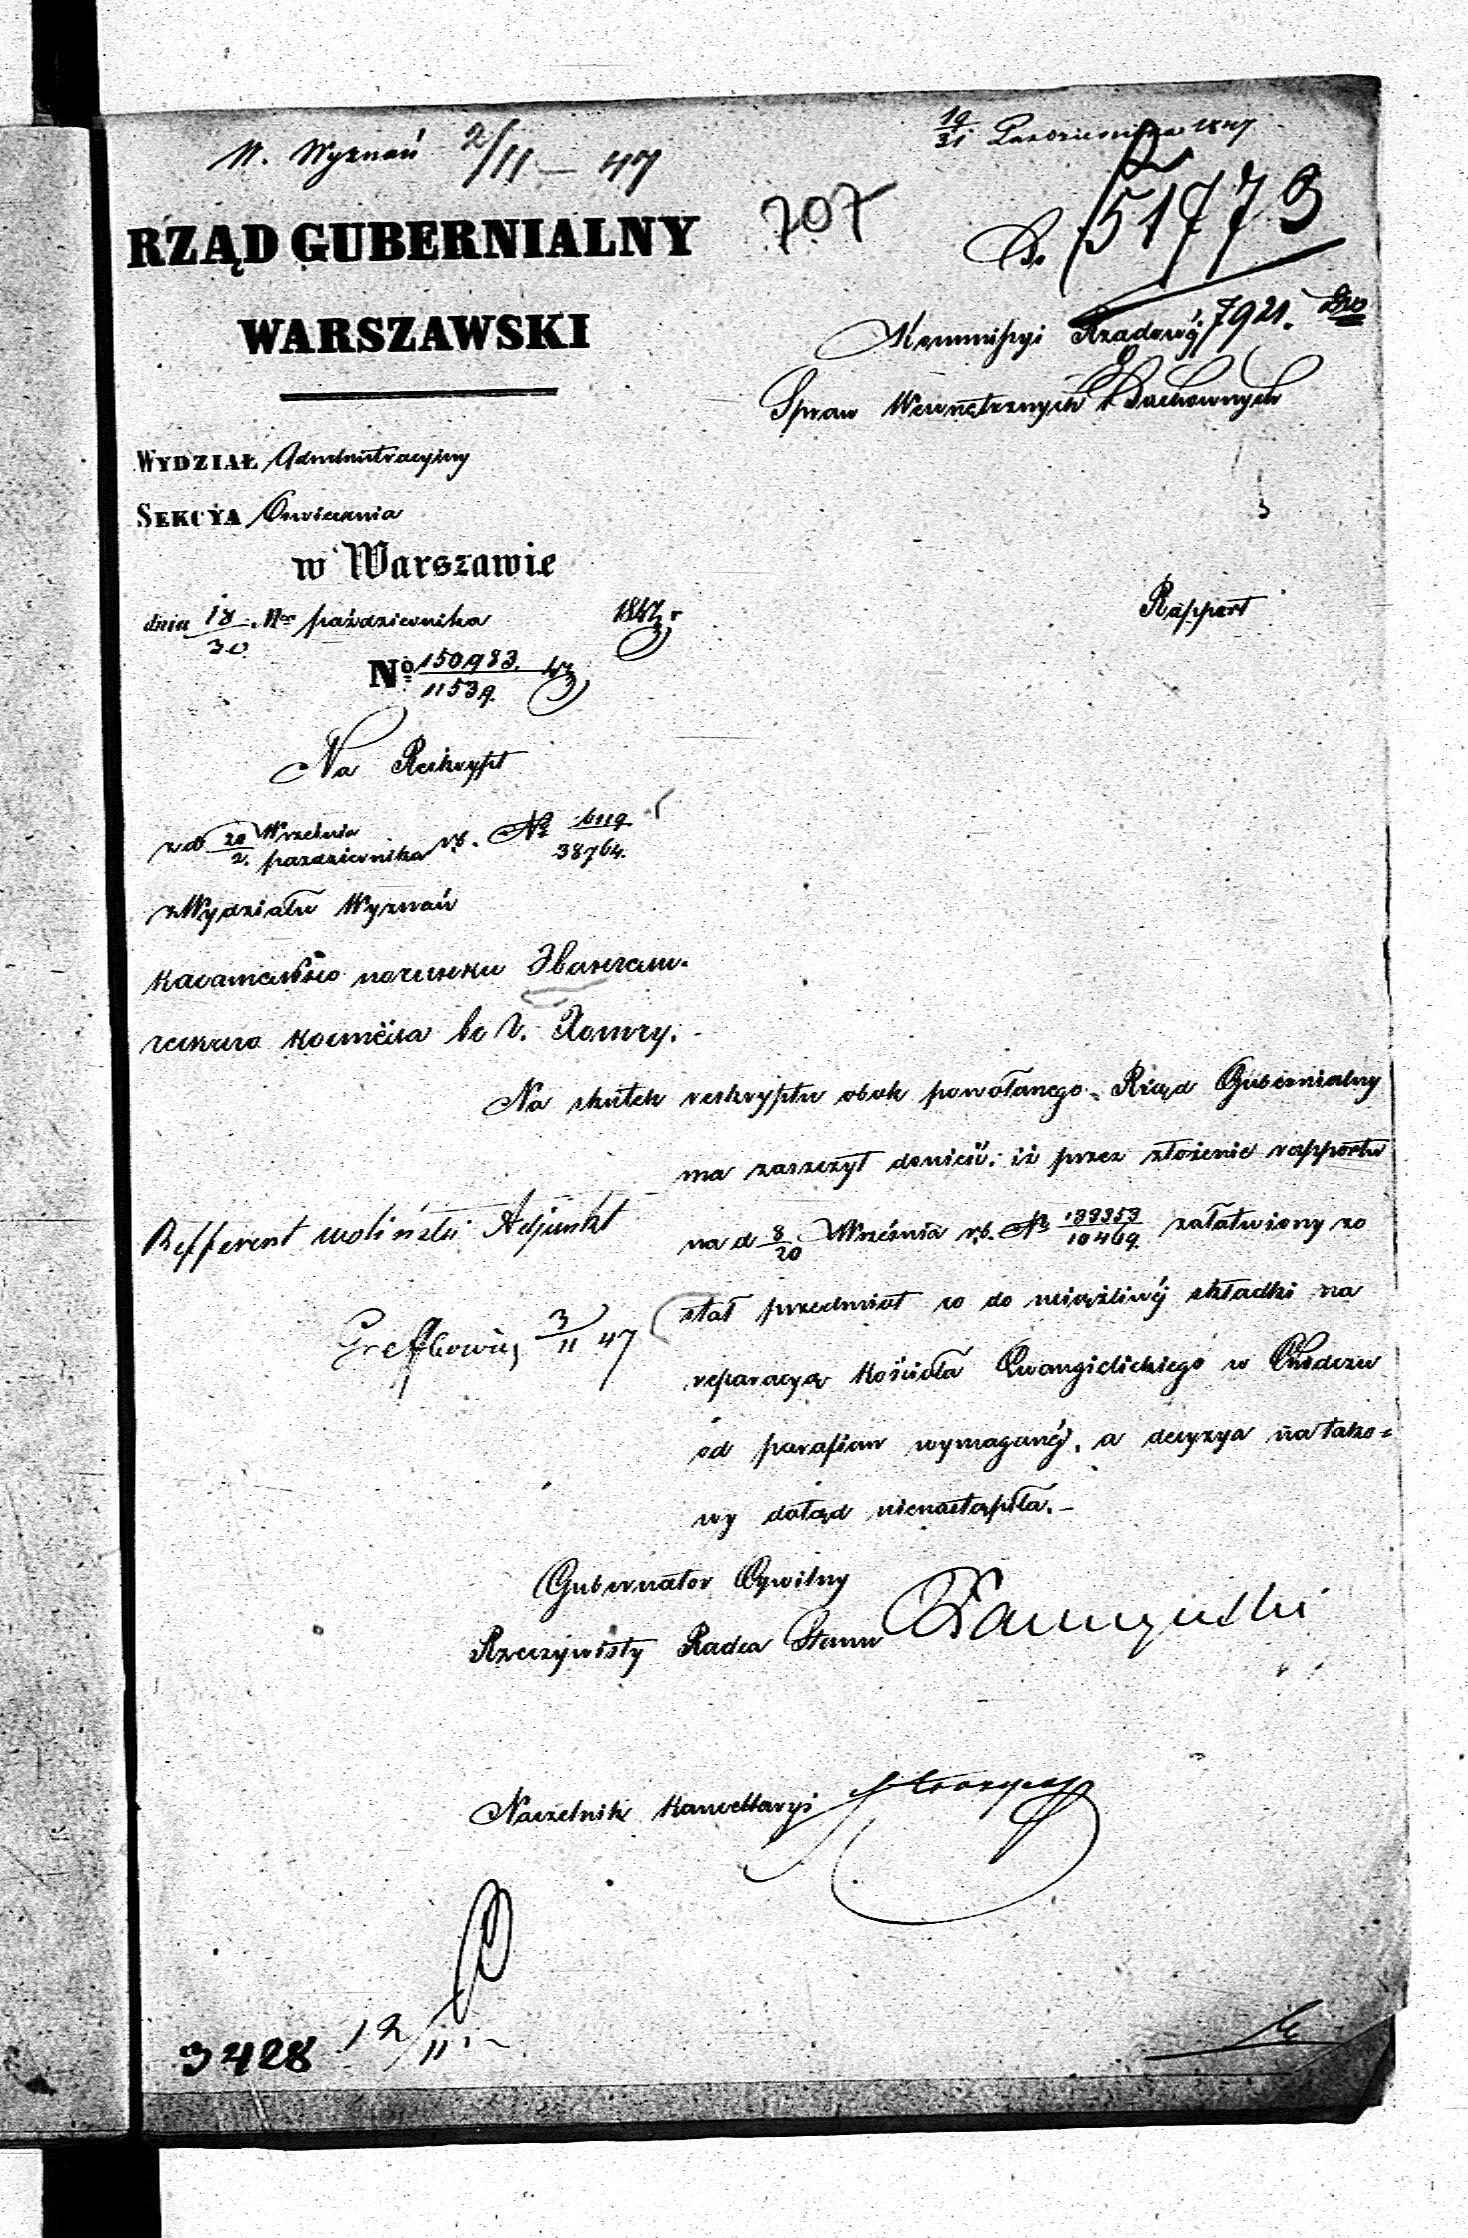 W. Wyznań 2/11 – 47
19/31 Października 1847
707
51773
7921.
RZĄD GUBERNIALNY
WARSZAWSKI
Kommissyi Rządowéj
Spraw Wewnętrznych i Duchownych
WYDZIAŁ Administracyjny
SEKCYA Oswiecenia
w Warszawie
dnia 18/30 października 1847 r
Rapport
No 150983/11539
Na Reskrypt
z d 20 Września/2 października rb. No 6119/38764.
z Wydziału Wyznań
Na skutek reskryptu obok powołanego, Rząd Gubernialny
ma zaszczyt donieść, iż przez złożenie rapportu
na d 8/20 Września rb. No 139353/10469 załatwiony zo
stał przedmiot co do uciążliwéj składki na
reparacyą Kościoła Ewangielickiego w Chodczu
od parafian wymaganéj, a decyzya na tako=
wy dotąd nienastąpiła. –
Refferent Woliński Adjunkt
3/11 47
Gubernator Cywilny
Rzeczywisty Radca Stanu
Naczelnik Kancellaryi
3428 12/11